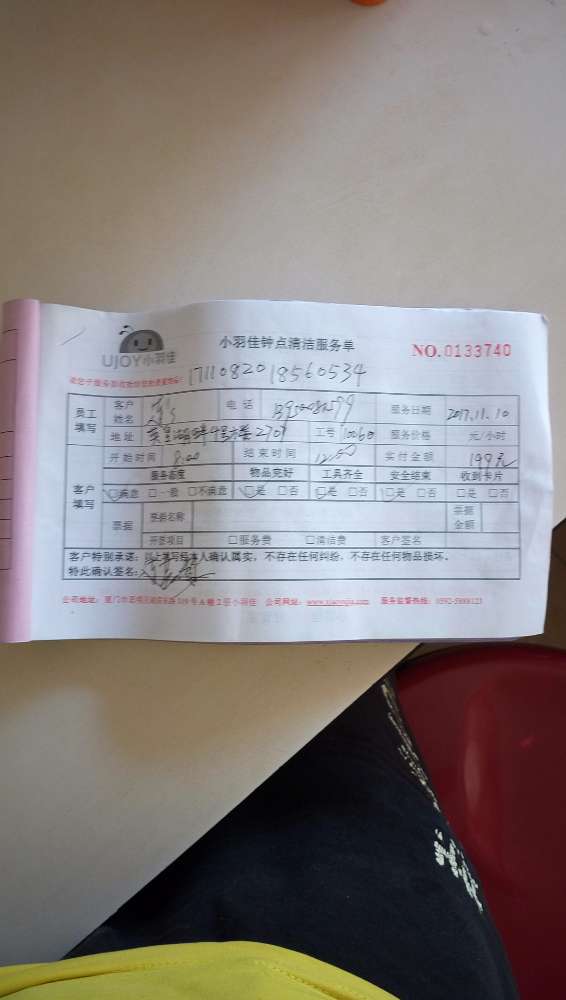 UJOY小羽佳
小羽佳钟点清洁服务单
NO.0133740
1711082018560534
员工填写 客户姓名 电话 服务日期 2017.11.10
地址 2707 工号 10060 服务价格 元/小时
开始时间 8:00 结束时间 12:00 实付金额 199元
客户填写 服务态度 物品完好 工具齐全 安全结束 收到卡片
□满意 □一般 □不满意 □是 □否 □是 □否 □是 □否 □是 □否
票据 票据名称 票据金额
开票项目 □服务费 □清洁费 客户签名
客户特别承诺：以上填写经本人确认属实，不存在任何纠纷，不存在任何物品损坏。
特此确认签名：
公司地址：厦门市思明区 319号A幢2层小羽佳 公司网址：www.xiaoyujia.com 服务监督热线：0592-5888123